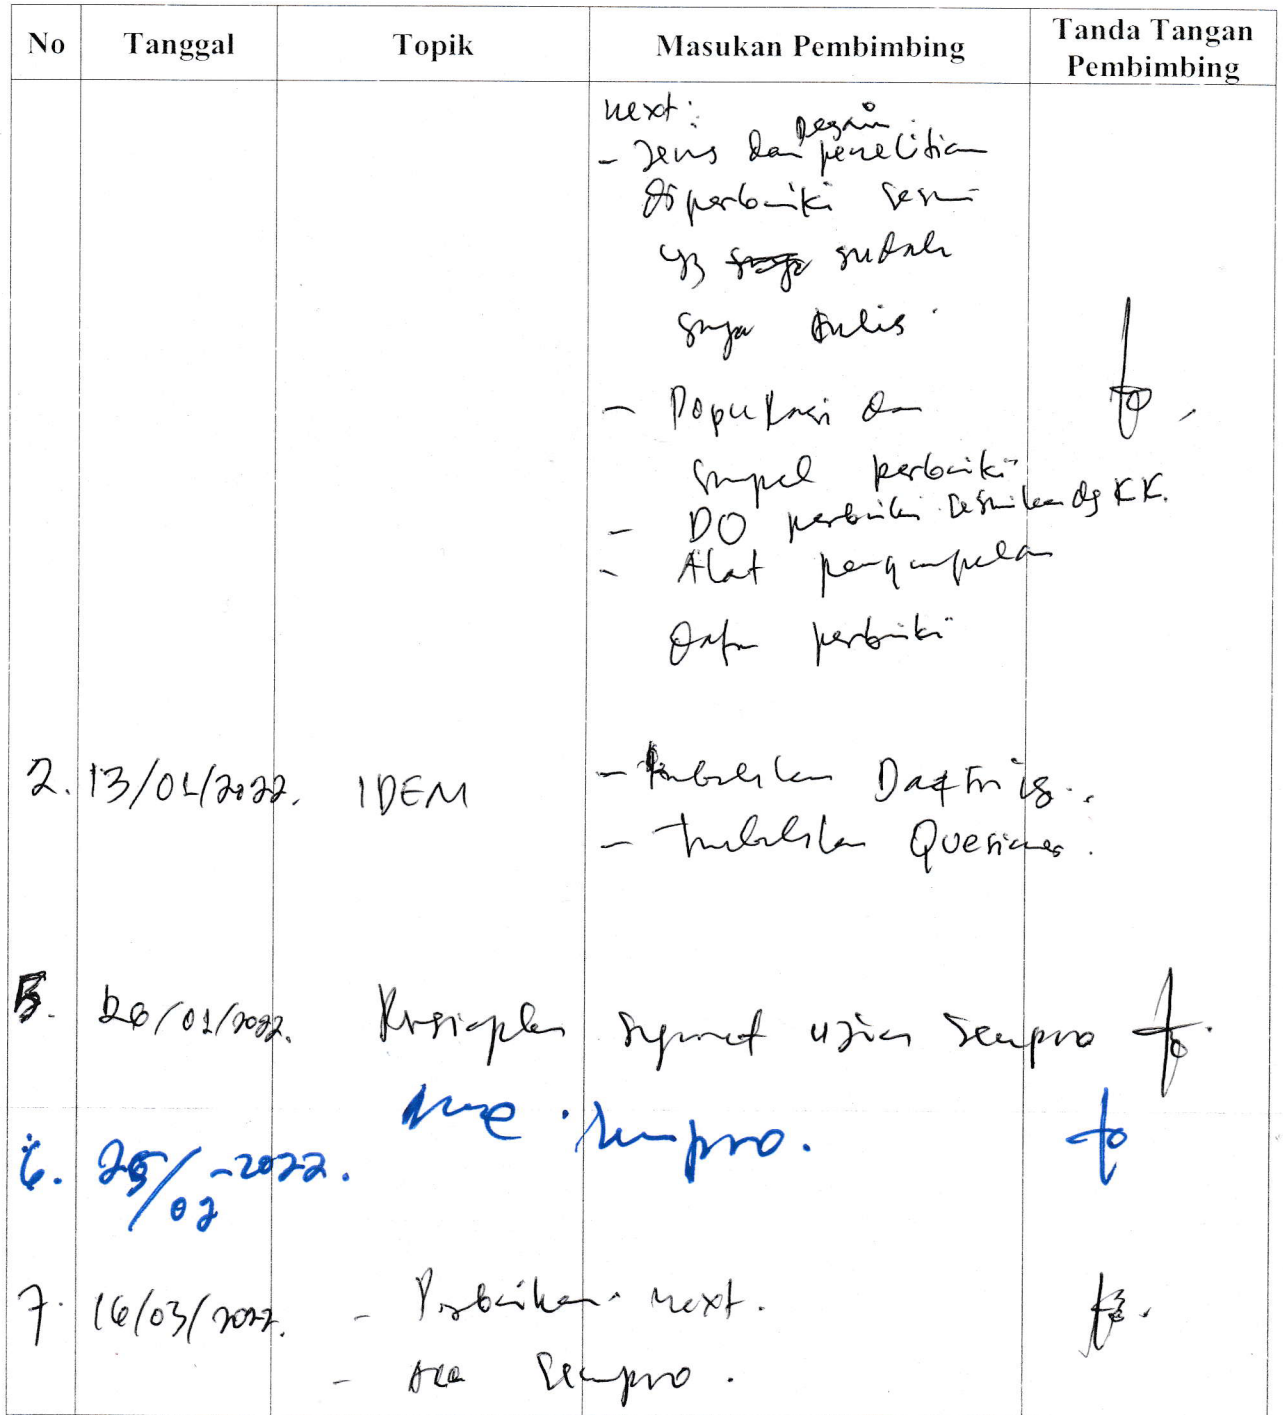 No Tanggal Topik Masukan Pembimbing Tanda Tangan Pembimbing
next:
Desain
- Jenis dan penelitian
diperbaiki sesuai
yg sudah
saya tulis.
- Populasi dan
sampel perbaiki
- DO perbaiki sesuikan dg KK.
- Alat pengumpulan
Data perbaiki
2. 13/01/2022. IDEM - Tambahkan
- Tambahkan Quesioner.
5. 26/01/2022. Persiapkan ujian Sempro
6. 25/02-2022. Acc. Sempro.
7. 16/03/2022. - Perbaikan next.
- Acc Sempro.